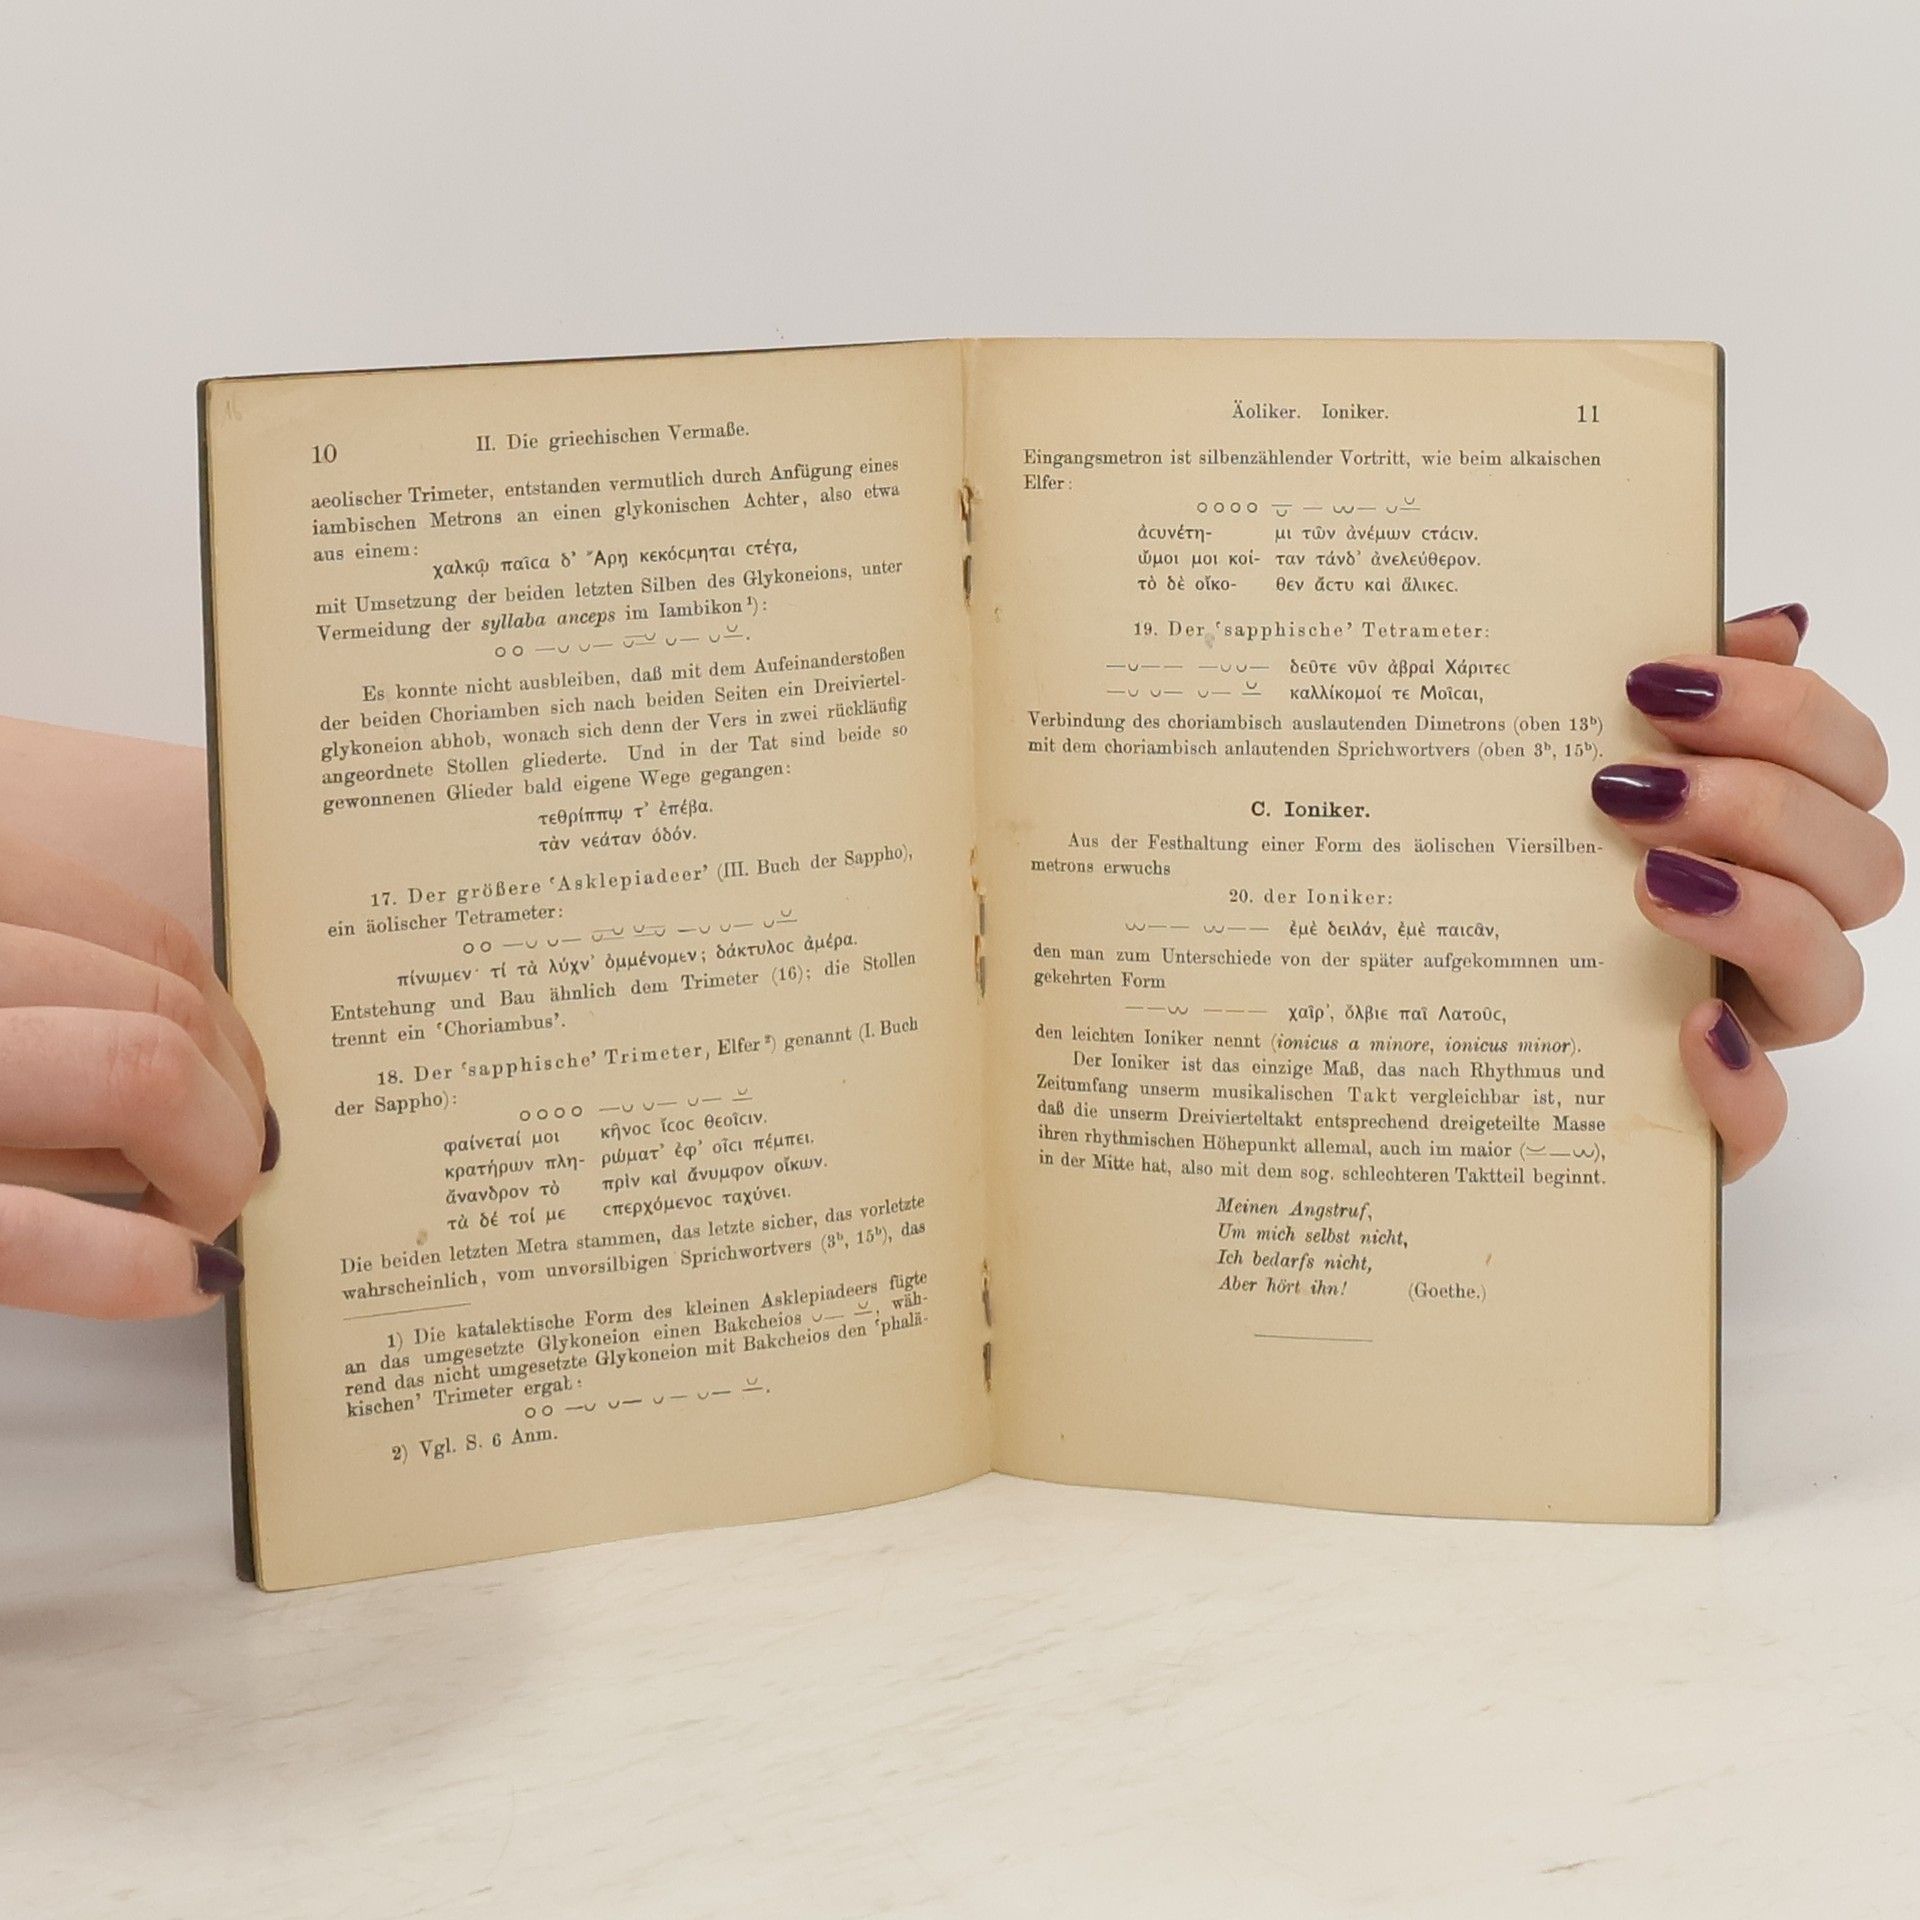 10
II. Die griechischen Vermaße.
aeolischer Trimeter, entstanden vermutlich durch Anfügung eines
iambischen Metrons an einen glykonischen Achter, also etwa
aus einem:
χαλκῷ παῖϲα δ’ Ἄρῃ κεκόϲμηται ϲτέγα,
mit Umsetzung der beiden letzten Silben des Glykoneions, unter
Vermeidung der syllaba anceps im Iambikon¹):
○○ —⏑ ⏑— ⏑— ⏑— ⏑—.
Es konnte nicht ausbleiben, daß mit dem Aufeinanderstoßen
der beiden Choriamben sich nach beiden Seiten ein Dreiviertel-
glykoneion abhob, wonach sich denn der Vers in zwei rückläufig
angeordnete Stollen gliederte. Und in der Tat sind beide so
gewonnenen Glieder bald eigene Wege gegangen:
τεθρίππῳ τ’ ἐπέβα.
τὰν νεάταν ὁδόν.
17. Der größere ‘Asklepiadeer’ (III. Buch der Sappho),
ein äolischer Tetrameter:
πίνωμεν· τί τὰ λύχν’ ὀμμένομεν; δάκτυλοϲ ἀμέρα.
Entstehung und Bau ähnlich dem Trimeter (16); die Stollen
trennt ein ‘Choriambus’.
18. Der ‘sapphische’ Trimeter, Elfer²) genannt (I. Buch
der Sappho):
○○○○ —⏑ ⏑— ⏑— ⏓
φαίνεταί μοι κῆνοϲ ἴϲοϲ θεοῖϲιν.
κρατήρων πλη- ρώματ’ ἐφ’ οἷϲι πέμπει.
ἄνανδρον τὸ πρὶν καὶ ἄνυμφον οἴκων.
τὰ δέ τοί με ϲπερχόμενοϲ ταχύνει.
Die beiden letzten Metra stammen, das letzte sicher, das vorletzte
wahrscheinlich, vom unvorsilbigen Sprichwortvers (3ᵇ, 15ᵇ), das
1) Die katalektische Form des kleinen Asklepiadeers fügte
an das umgesetzte Glykoneion einen Bakcheios ⏑— ⏓, wäh-
rend das nicht umgesetzte Glykoneion mit Bakcheios den ‘phalä-
kischen’ Trimeter ergab:
○○ —⏑ ⏑— ⏑— ⏑— ⏓.
2) Vgl. S. 6 Anm.
Äoliker. Ioniker.
11
Eingangsmetron ist silbenzählender Vortritt, wie beim alkaischen
Elfer:
○○○○ ⏓ — ⏑⏑— ⏑⏓
ἀϲυνέτη- μι τῶν ἀνέμων ϲτάϲιν.
ὤμοι μοι κοί- ταν τάνδ’ ἀνελεύθερον.
τὸ δὲ οἴκο- θεν ἄϲτυ καὶ ἅλικεϲ.
19. Der ‘sapphische’ Tetrameter:
—⏑—— —⏑⏑— δεῦτε νῦν ἁβραὶ Χάριτεϲ
—⏑ ⏑— ⏑— ⏓ καλλίκομοί τε Μοῖϲαι,
Verbindung des choriambisch auslautenden Dimetrons (oben 13ᵇ)
mit dem choriambisch anlautenden Sprichwortvers (oben 3ᵇ, 15ᵇ).
C. Ioniker.
Aus der Festhaltung einer Form des äolischen Viersilben-
metrons erwuchs
20. der Ioniker:
⏑⏑—— ⏑⏑—— ἐμὲ δειλάν, ἐμὲ παιϲᾶν,
den man zum Unterschiede von der später aufgekommnen um-
gekehrten Form
——⏑⏑ ——— χαῖρ’, ὄλβιε παῖ Λατοῦϲ,
den leichten Ioniker nennt (ionicus a minore, ionicus minor).
Der Ioniker ist das einzige Maß, das nach Rhythmus und
Zeitumfang unserm musikalischen Takt vergleichbar ist, nur
daß die unserm Dreivierteltakt entsprechend dreigeteilte Masse
ihren rhythmischen Höhepunkt allemal, auch im maior (⏓—⏑⏑),
in der Mitte hat, also mit dem sog. schlechteren Taktteil beginnt.
Meinen Angstruf,
Um mich selbst nicht,
Ich bedarfs nicht,
Aber hört ihn! (Goethe.)